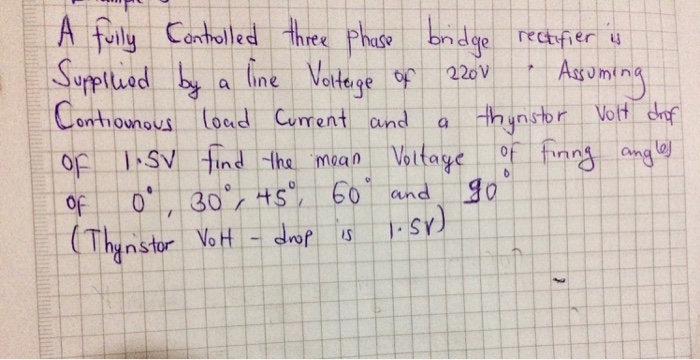 A fully Controlled three phase bridge rectifier is
Suppliied by a line Voltage of 220V . Assuming
Contiounous load Current and a thyristor Volt drof
of 1.5V find the mean Voltage of firing angles
of 0°, 30°, 45°, 60° and 90°
(Thyristor Volt - drop is 1.5V)